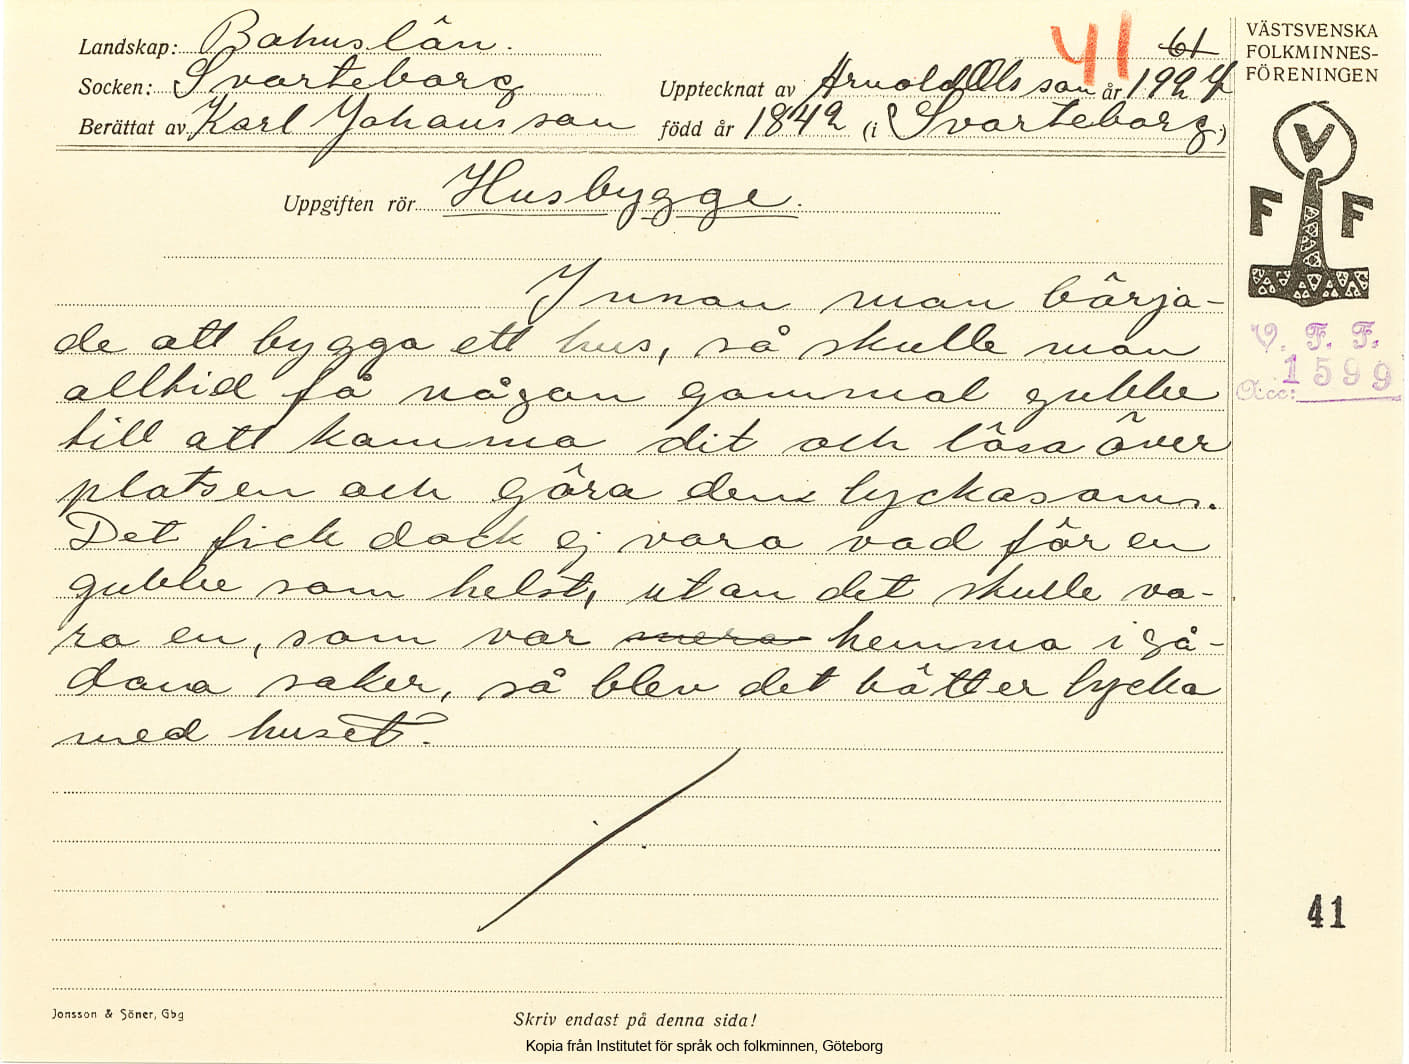 Landskap: Bohuslän.
Socken: Svarteborg
Upptecknat av Arnold Olsson år 1924
Berättat av Karl Johansson född år 1842 (i Svarteborg)
41 61
Uppgiften rör Husbygge.
Innan man börja-
de att bygga ett hus, så skulle man
alltid få någon gammal gubbe
till att komma dit och läsa över
platsen och göra den lyckosam.
Det fick dock ej vara vad för en
gubbe som helst, utan det skulle va-
ra en, som var mera hemma i så-
dana saker, så blev det bätter lycka
med huset.
VÄSTSVENSKA
FOLKMINNES-
FÖRENINGEN
V
F F
V. F. F.
1599
Acc:
41
Jonsson & Söner, Gbg
Skriv endast på denna sida!
Kopia från Institutet för språk och folkminnen, Göteborg